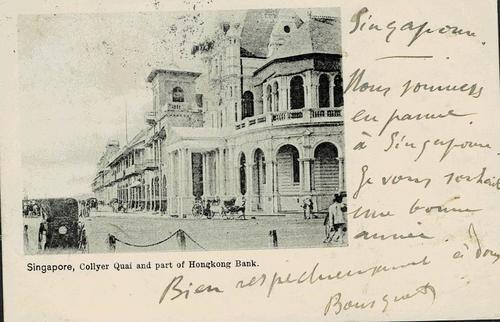 Singapour.
Nous sommes
en panne
à Singapour.
Je vous souhaite
une bonne
année.
Bien respectueusement à vous
Bousquet
Singapore, Collyer Quai and part of Hongkong Bank.